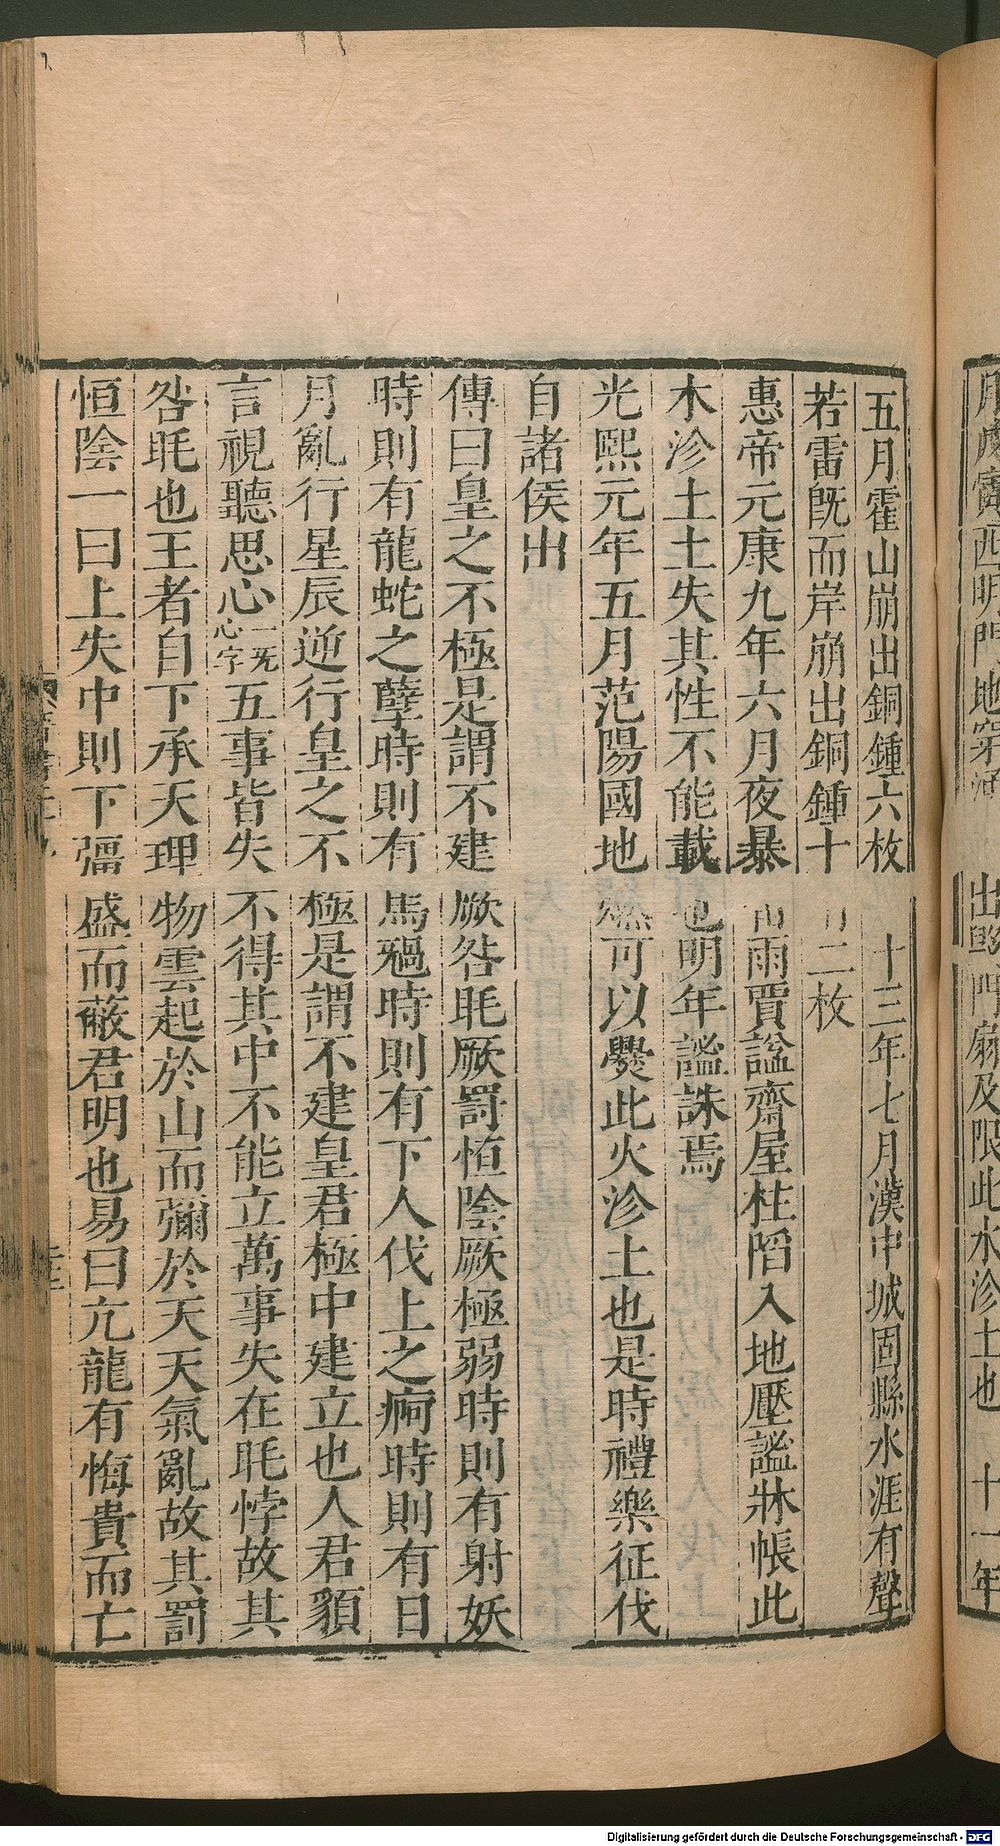 五月霍山崩出銅鍾六枚　十三年七月漢中城固縣水涯有聲
若雷旣而岸崩出銅鍾十有二枚
惠帝元康九年六月夜暴雷雨賈謐齋屋柱陷入地壓謐牀帳此
木沴土土失其性不能載也明年謐誅焉
光熙元年五月范陽國地燃可以爨此火沴土也是時禮樂征伐
自諸侯出
傳曰皇之不極是謂不建厥咎眊厥罰恒陰厥極弱時則有射妖
時則有龍蛇之孽時則有馬禍時則有下人伐上之痾時則有日
月亂行星辰逆行皇之不極是謂不建皇君極中建立也人君貌
言視聽思心一无心字五事皆失不得其中不能立萬事失在眊悖故其
咎眊也王者自下承天理物雲起於山而彌於天天氣亂故其罰
恒陰一曰上失中則下彊盛而蔽君明也易曰亢龍有悔貴而亡
西明門地
出 門扇及限此水沴土也　十一年
Digitalisierung gefördert durch die Deutsche Forschungsgemeinschaft - DFG